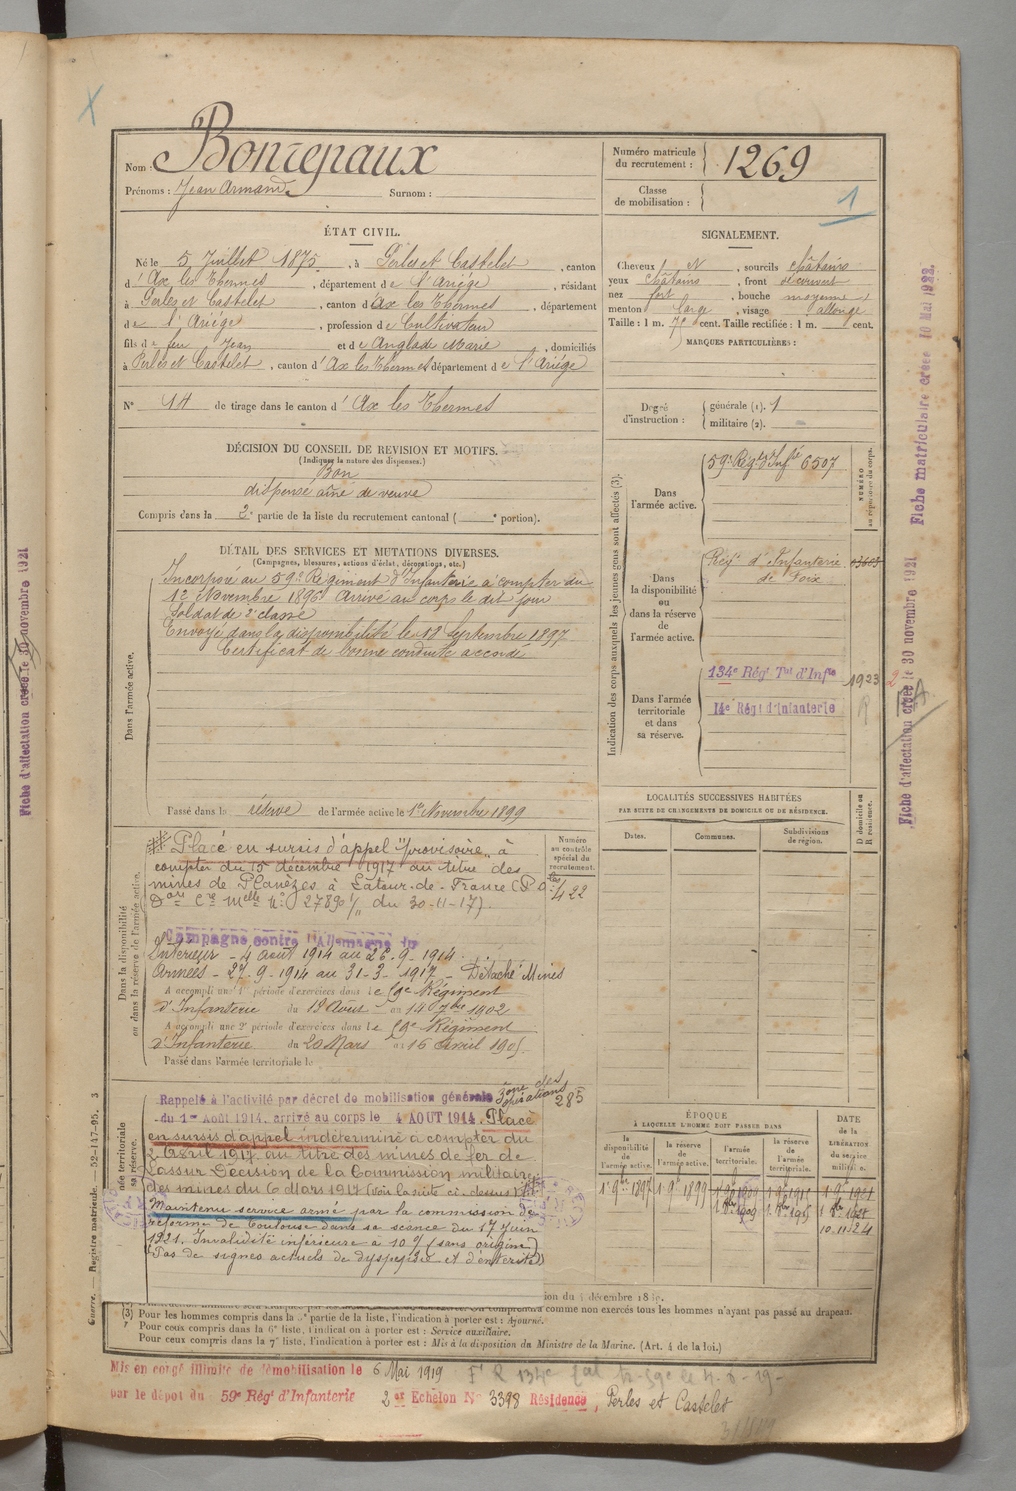 Nom : Bonrepaux
Prénoms : Jean Armand Surnom :
Numéro matricule du recrutement : 1269
Classe de mobilisation :
1
ÉTAT CIVIL.
Né le 5 Juillet 1875, à Perles et Castelet, canton
d'Ax les Thermes, département de l'Ariège, résidant
à Perles et Castelet, canton d'Ax les Thermes, département
de l'Ariège, profession de Cultivateur
fils de feu Jean et de Anglade Marie, domiciliés
à Perles et Castelet, canton d'Ax les Thermes département de l'Ariège
N° 14 de tirage dans le canton d'Ax les Thermes
SIGNALEMENT.
Cheveux N, sourcils châtains
yeux châtains, front découvert
nez fort, bouche moyenne
menton large, visage allongé
Taille : 1 m. 75 cent. Taille rectifiée : 1 m. cent.
MARQUES PARTICULIÈRES :
Degré d'instruction : générale (1). 1
militaire (2).
DÉCISION DU CONSEIL DE REVISION ET MOTIFS.
(Indiquer la nature des dispenses.)
Bon
dispensé aîné de veuve
Compris dans la 2e partie de la liste du recrutement cantonal ( e portion).
DÉTAIL DES SERVICES ET MUTATIONS DIVERSES.
(Campagnes, blessures, actions d'éclat, décorations, etc.)
Dans l'armée active.
Incorporé au 59e Régiment d'Infanterie à compter du
12 Novembre 1896 Arrivé au corps le dit jour
Soldat de 2e classe
Envoyé dans la disponibilité le 18 Septembre 1897
Certificat de bonne conduite accordé
Passé dans la réserve de l'armée active le 1er Novembre 1899
Indication des corps auxquels les jeunes gens sont affectés (3).
NUMÉRO au répertoire du corps.
Dans l'armée active. 59e Régt d'Infie 6507
Dans la disponibilité ou dans la réserve de l'armée active. Régt d'Infanterie de Foix
Dans l'armée territoriale et dans sa réserve. 134e Régt Tal d'Infie 1923
14e Régt d'Infanterie
LOCALITÉS SUCCESSIVES HABITÉES
PAR SUITE DE CHANGEMENTS DE DOMICILE OU DE RÉSIDENCE.
Dates. Communes. Subdivisions de région. D domicile ou R résidence.
Dans la disponibilité ou dans la réserve de l'armée active.
Placé en sursis d'appel "provisoire" à
compter du 15 décembre 1917 au titre des
mines de Planèzes à Latour-de-France (P.O.les
Don Cre Melle No 27890 du 30-11-17).
Numéro au contrôle spécial du recrutement.
422
Campagne contre l'Allemagne du
Intérieur - 4 août 1914 au 26-9-1914
Armées - 27-9-1914 au 31-3-1917 - Détaché Mines
A accompli une 1re période d'exercices dans le 59e Régiment
d'Infanterie du 18 Août au 14 7bre 1902
A accompli une 2e période d'exercices dans le 59e Régiment
d'Infanterie du 20 Mars au 16 Avril 1905
Passé dans l'armée territoriale le
Rappelé à l'activité par décret de mobilisation générale
du 1er Août 1914, arrivé au corps le 4 AOUT 1914. Placé
zone des opérations 285
en sursis d'appel indéterminé à compter du
2 Avril 1917 au titre des mines de fer de
Lassur Décision de la Commission militaire
des mines du 6 Mars 1917 (voir la suite ci-dessus)
Maintenu service armé par la commission de
réforme de Toulouse dans sa séance du 17 juin
1921. Invalidité inférieure à 10 % (sans origine)
Pas de signes actuels de dyspepsie et d'entérite
ÉPOQUE
A LAQUELLE L'HOMME DOIT PASSER DANS
la disponibilité de l'armée active. la réserve de l'armée active. l'armée territoriale. la réserve de l'armée territoriale. DATE de la LIBÉRATION du service militaire.
1er 9bre 1897 1er 9bre 1899 1er 9bre 1909 1er 9bre 1915 1er 9bre 1921
10.11.24
ion du 4 décembre 18
(3) Pour les hommes compris dans la partie de la liste, l'indication à porter est : Ajourné.
Pour ceux compris dans la 6e liste, l'indication à porter est : Service auxiliaire.
Pour ceux compris dans la 7e liste, l'indication à porter est : Mis à la disposition du Ministre de la Marine. (Art. 4 de la loi.)
Mis en congé illimité de démobilisation le 6 Mai 1919
par le dépôt du 59e Régt d'Infanterie 2me Echelon No 3398 Résidence, Perles et Castelet
Guerre. — Registre matricule. — 52-147-95. 3
Fiche matriculaire créée 10 Mai 1922.
Fiche d'affectation créée le 30 novembre 1921
Fiche d'affectation créée le 30 novembre 1921